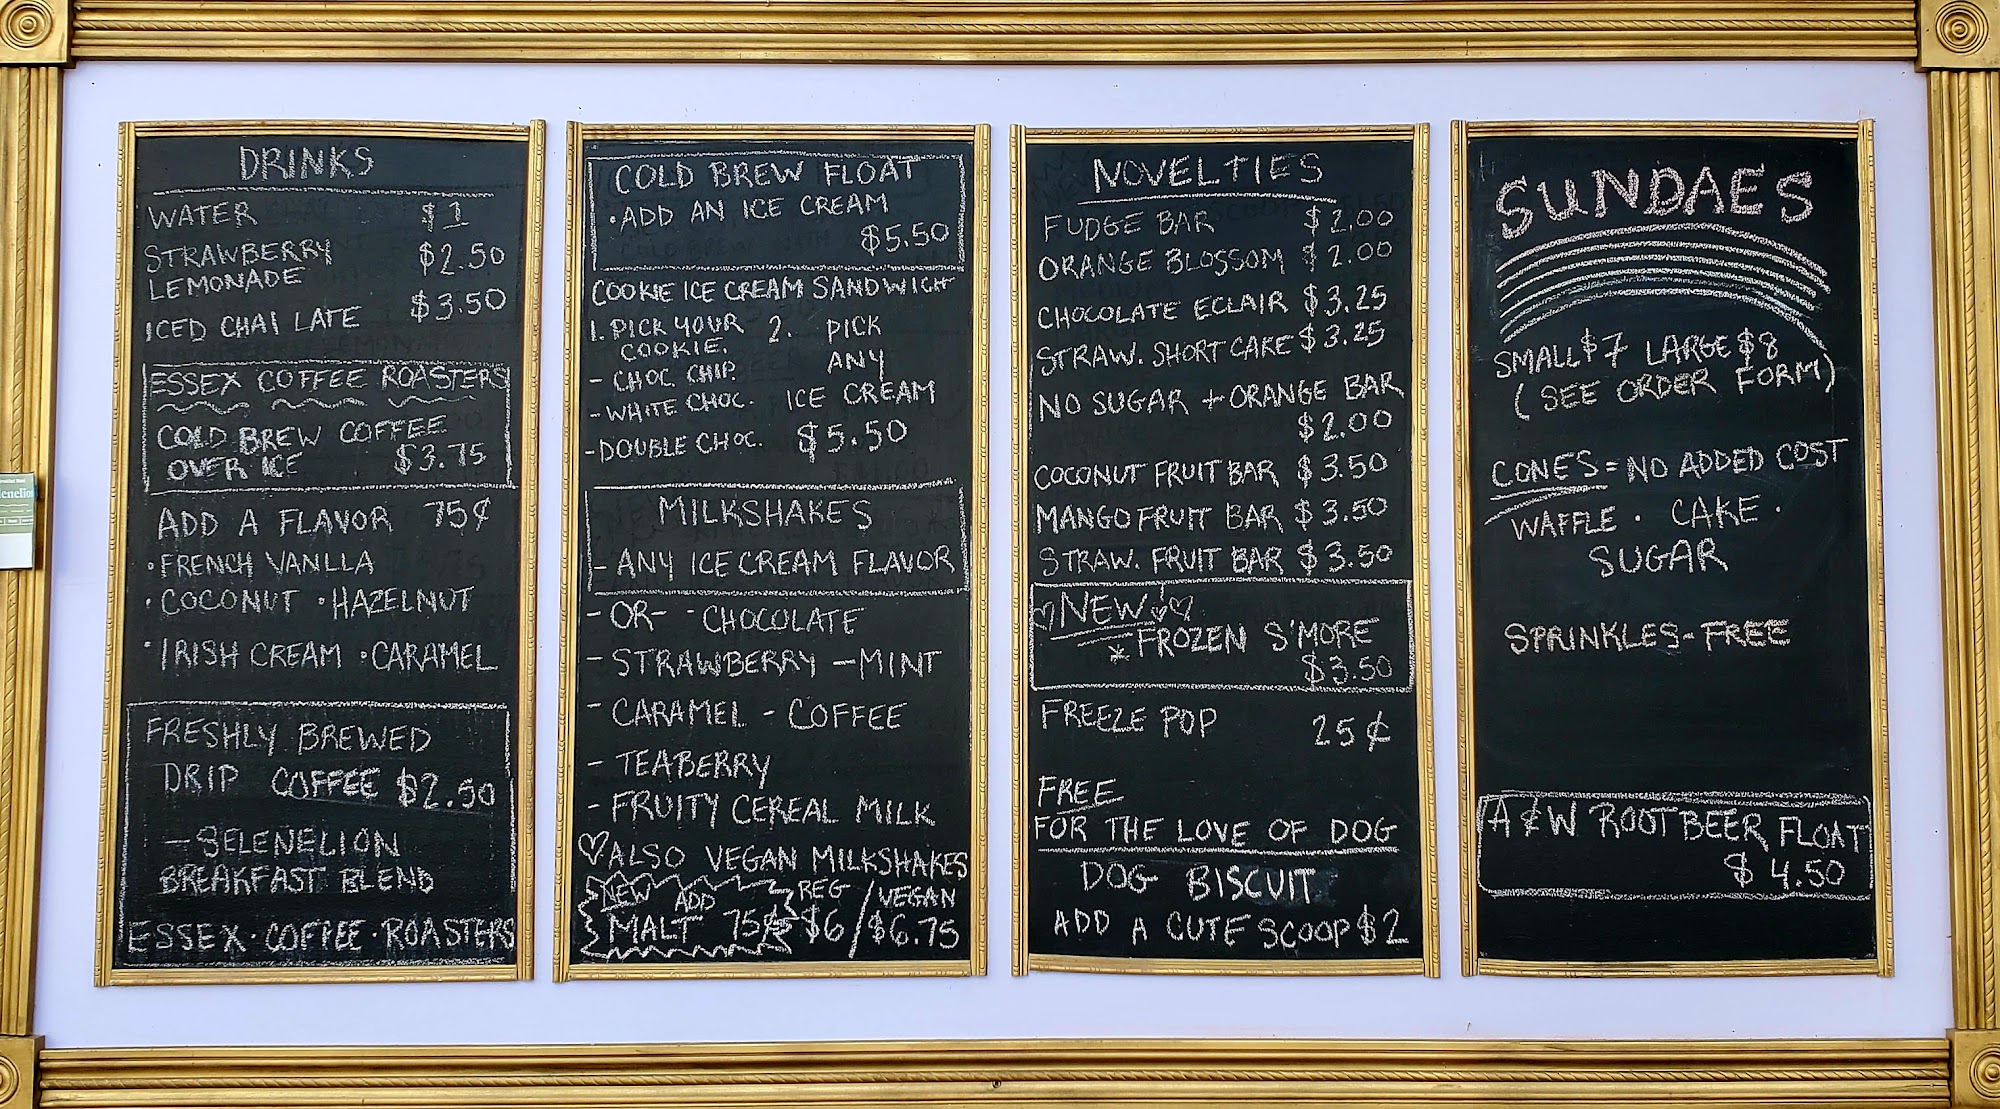 DRINKS
WATER $1
STRAWBERRY $2.50
LEMONADE
ICED CHAI LATE $3.50
ESSEX COFFEE ROASTERS
COLD BREW COFFEE
OVER ICE $3.75
ADD A FLAVOR 75¢
•FRENCH VANLLA
•COCONUT •HAZELNUT
•IRISH CREAM •CARAMEL
FRESHLY BREWED
DRIP COFFEE $2.50
—SELENELION
BREAKFAST BLEND
ESSEX•COFFEE•ROASTERS
COLD BREW FLOAT
•ADD AN ICE CREAM
$5.50
COOKIE ICE CREAM SANDWICH
1. PICK YOUR 2. PICK
COOKIE. ANY
- CHOC. CHIP.
- WHITE CHOC. ICE CREAM
- DOUBLE CHOC. $5.50
MILKSHAKES
- ANY ICE CREAM FLAVOR
- OR - - CHOCOLATE
- STRAWBERRY — MINT
- CARAMEL - COFFEE
- TEABERRY
- FRUITY CEREAL MILK
♡ALSO VEGAN MILKSHAKES
NEW ADD REG / VEGAN
MALT 75¢ $6 / $6.75
NOVELTIES
FUDGE BAR $2.00
ORANGE BLOSSOM $2.00
CHOCOLATE ECLAIR $3.25
STRAW. SHORT CAKE $3.25
NO SUGAR + ORANGE BAR
$2.00
COCONUT FRUIT BAR $3.50
MANGO FRUIT BAR $3.50
STRAW. FRUIT BAR $3.50
♡NEW♡♡
* FROZEN S'MORE
$3.50
FREEZE POP 25¢
FREE
FOR THE LOVE OF DOG
DOG BISCUIT
ADD A CUTE SCOOP $2
SUNDAES
SMALL $7 LARGE $8
(SEE ORDER FORM)
CONES = NO ADDED COST
WAFFLE • CAKE •
SUGAR
SPRINKLES - FREE
A&W ROOT BEER FLOAT
$4.50